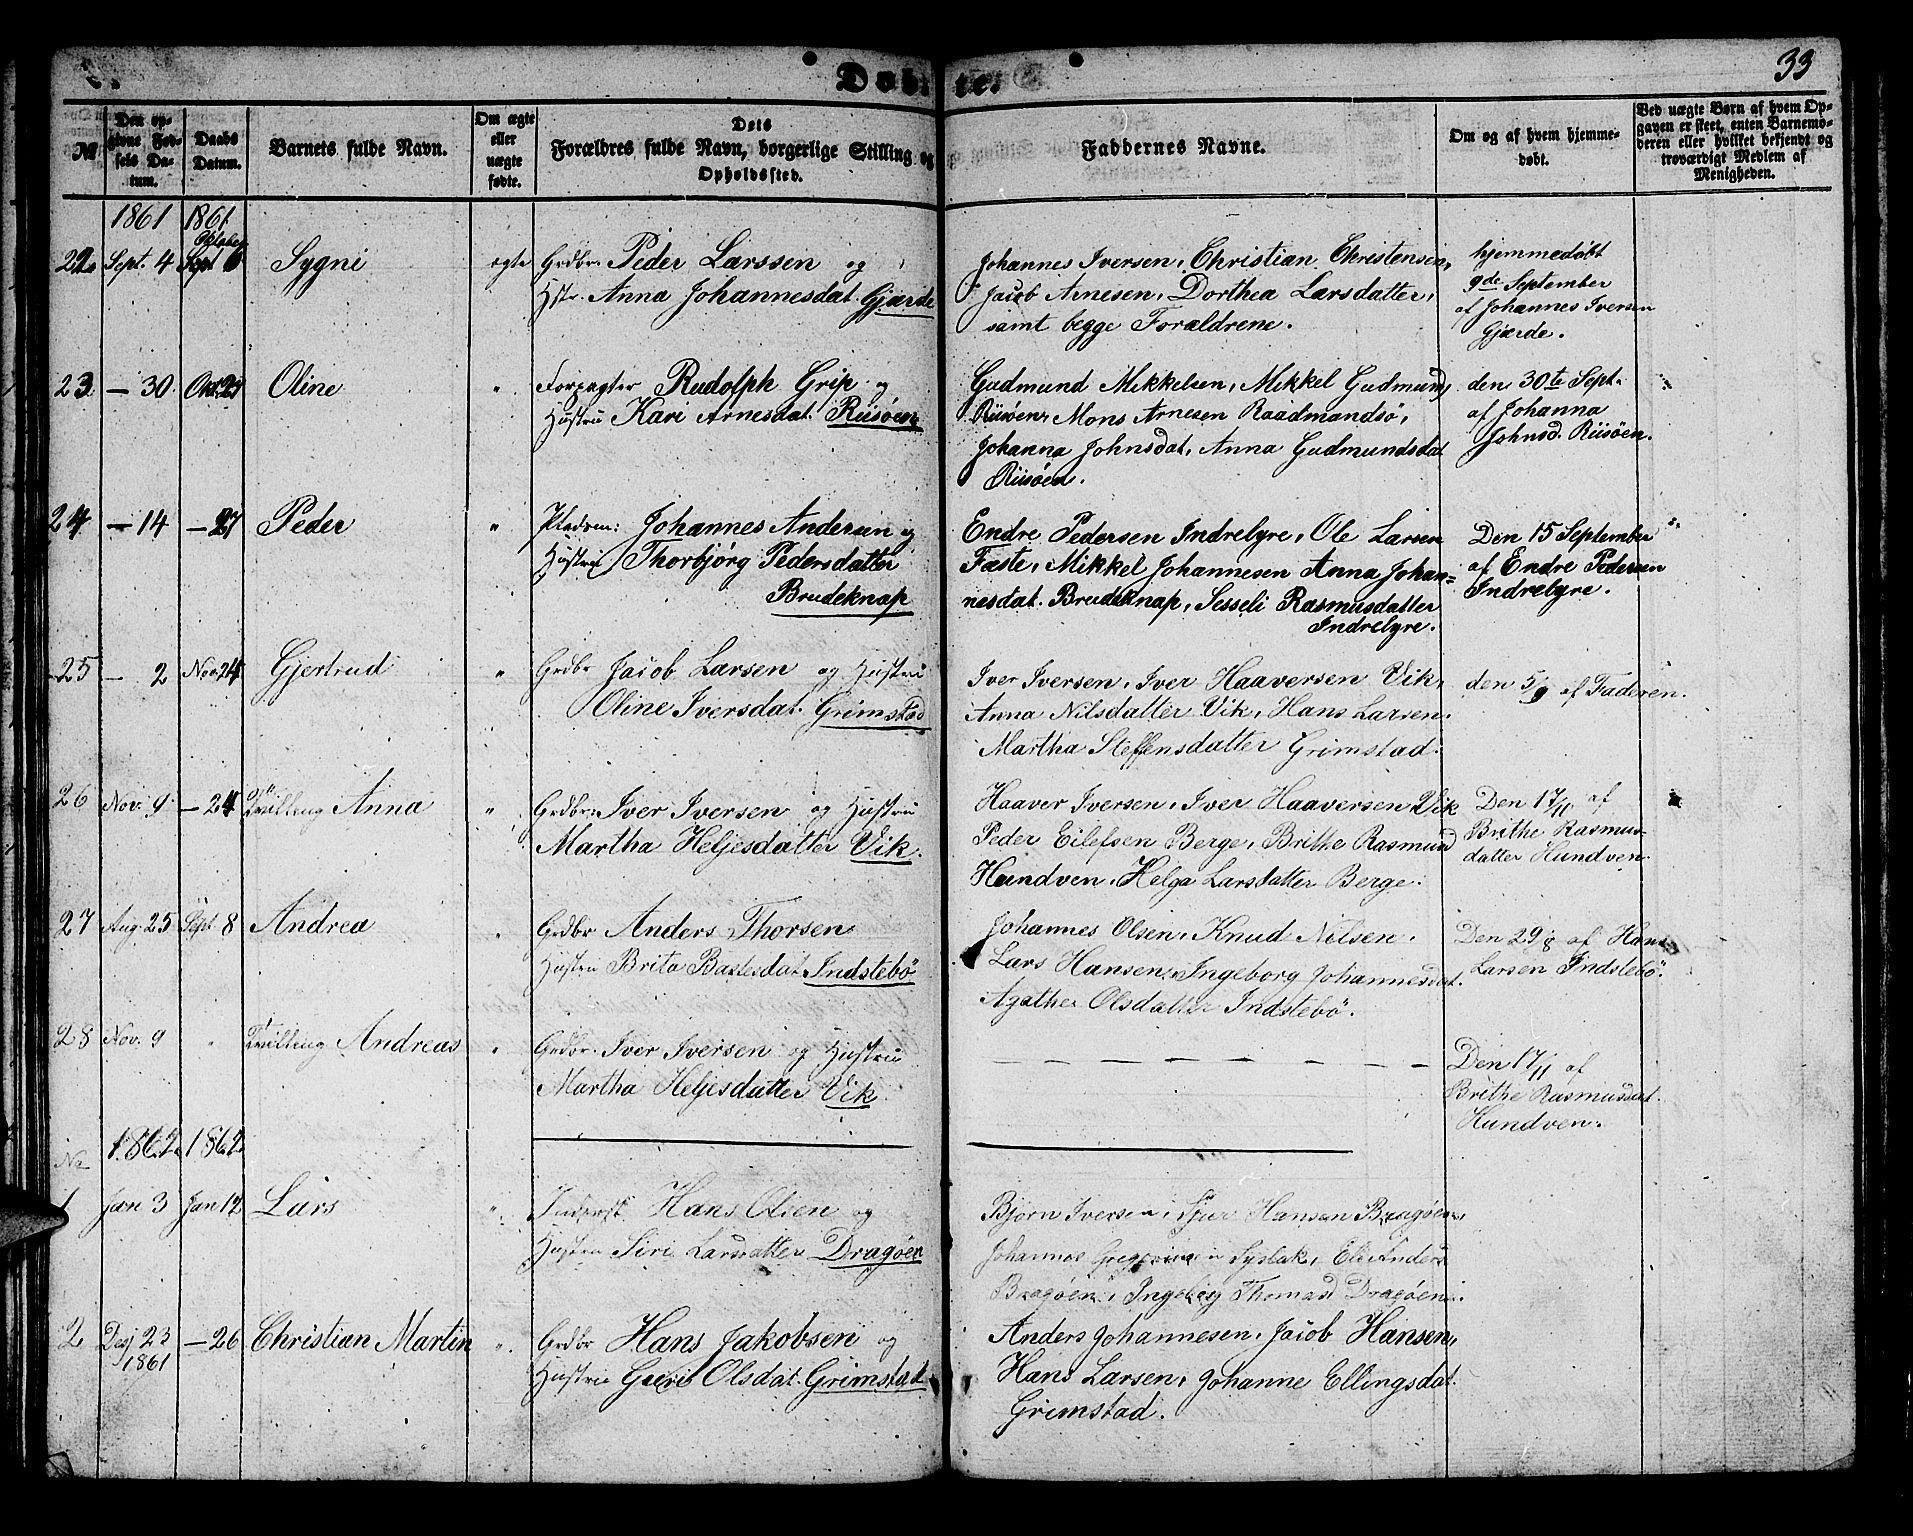 Døbte.
33
№
Den op-
givne Fød-
sels Da-
tum.
Daabs
Datum.
Barnets fulde Navn.
Om ægte
eller
uægte
fødte.
Dets
Forældres fulde Navn, borgerlige Stilling og
Opholdssted.
Faddernes Navne.
Om og af hvem hjemme-
døbt.
Ved uægte Børn af hvem Op-
gaven er skeet, enten Barnemo-
deren eller hvilket bekjendt og
troværdigt Medlem af
Menigheden.
1861 1861
22. Sept. 4 Oktober 6 Sygni ægte Grdbr. Peder Larssen og
Hstr. Anna Johannesdat. Gjærde
Johannes Iversen, Christian Christensen,
Jacob Arnesen, Dorthea Larsdatter,
samt begge Forældrene.
hjemmedøbt
9de September
af Johannes Iversen
Gjærde.
23 — 30. Oline " Forpagter Rudolph Grip og
Hustru Kari Arnesdat. Riisøen
Gudmund Mikkelsen, Mikkel Gudmunds
Riisøen, Mons Arnesen Raadmandsö,
Johanna Johnsdat, Anna Gudmundsdat
Riisöen.
den 30te Sept.
af Johanna
Johnsd. Riisøen.
24 — 14 — 27 Peder " Pladsm: Johannes Andersen og
Hustru Thorbjörg Pedersdatter
Brudeknap
Endre Pedersen Indrelyre, Ole Larsen
Fæste, Mikkel Johannesen Anna Johan-
nesdat. Brudeknap, Sesseli Rasmusdatter
Indrelyre.
Den 15 September
af Endre Pedersen
Indrelyre.
25 — 2 Nov. 24 Gjertrud " Grdbr Jacob Larsen og Hustru
Oline Iversdat. Grimstad
Iver Iversen, Iver Haaversen Vik,
Anna Nilsdatter Vik, Hans Larsen
Martha Steffensdatter Grimstad.
den 5/9 af Faderen.
26 Nov. 9 — 24 Tvilling Anna " Grdbr: Iver Iversen og Hustru
Martha Heljesdatter Vik.
Haaver Iversen, Iver Haaversen Vik
Peder Eilefsen Berge, Brithe Rasmusd
Hundven, Helga Larsdatter Berge.
Den 17/11 af
Brithe Rasmus-
datter Hundven.
27 Aug. 25 Sept 8 Andrea " Grdbr Anders Thorsen
Hustru Brita Bastesdat. Indstebö
Johannes Olsen, Knud Nilsen.
Lars Hansen, Ingeborg Johannesdat.
Agathe Olsdatter Indstebö.
Den 29/8 af Hans
Larsen Indstebö.
28 Nov. 9 " Tvilling Andreas " Grdbr. Iver Iversen og Hustru
Martha Heljesdatter Vik
— — — — — — — —
Den 17/11 af
Brithe Rasmusdat.
Hundven.
No 1862 1862
1 Jan 3 Jan 12 Lars " Hans Olsen og
Hustru Siri Larsdatter Dragöen
Björn Iversen, Sjur Hansen Dragöen,
Johannes Syslak, Eli Anders
Dragöen, Ingeborg Thomasd Dragöen.
2 Dej 23 — 26 Christian Martin " Grdbr Hans Jakobsen og
1861
Hustru Guri Olsdat. Grimstad
Anders Johannesen, Jacob Hansen,
Hans Larsen, Johanne Ellingsdat.
Grimstad.